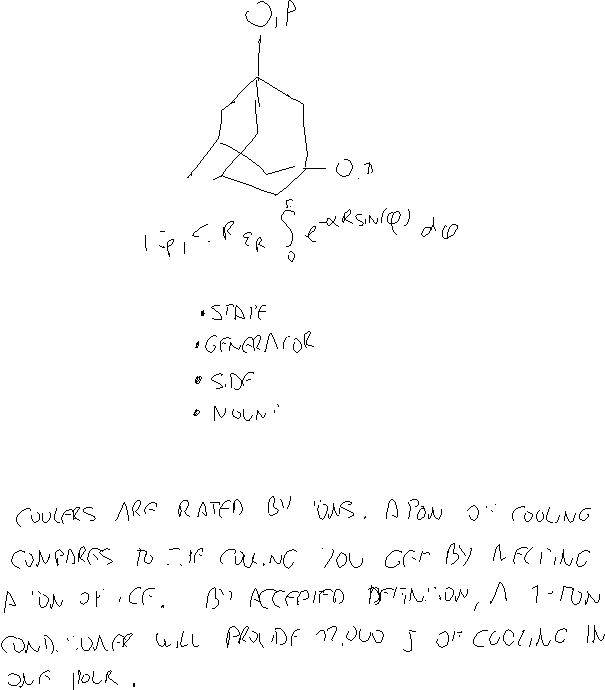 |I_R| ≤ R ε_R ∫ e^{-αR sin(φ)} dφ
• STATE
• GENERATOR
• SIDE
• MOUNT
COOLERS ARE RATED BY TONS. A TON OF COOLING
COMPARES TO THE COOLING YOU GET BY MELTING
A TON OF ICE. BY ACCEPTED DEFINITION, A 1-TON
CONDITIONER WILL PROVIDE OF COOLING IN
ONE HOUR.